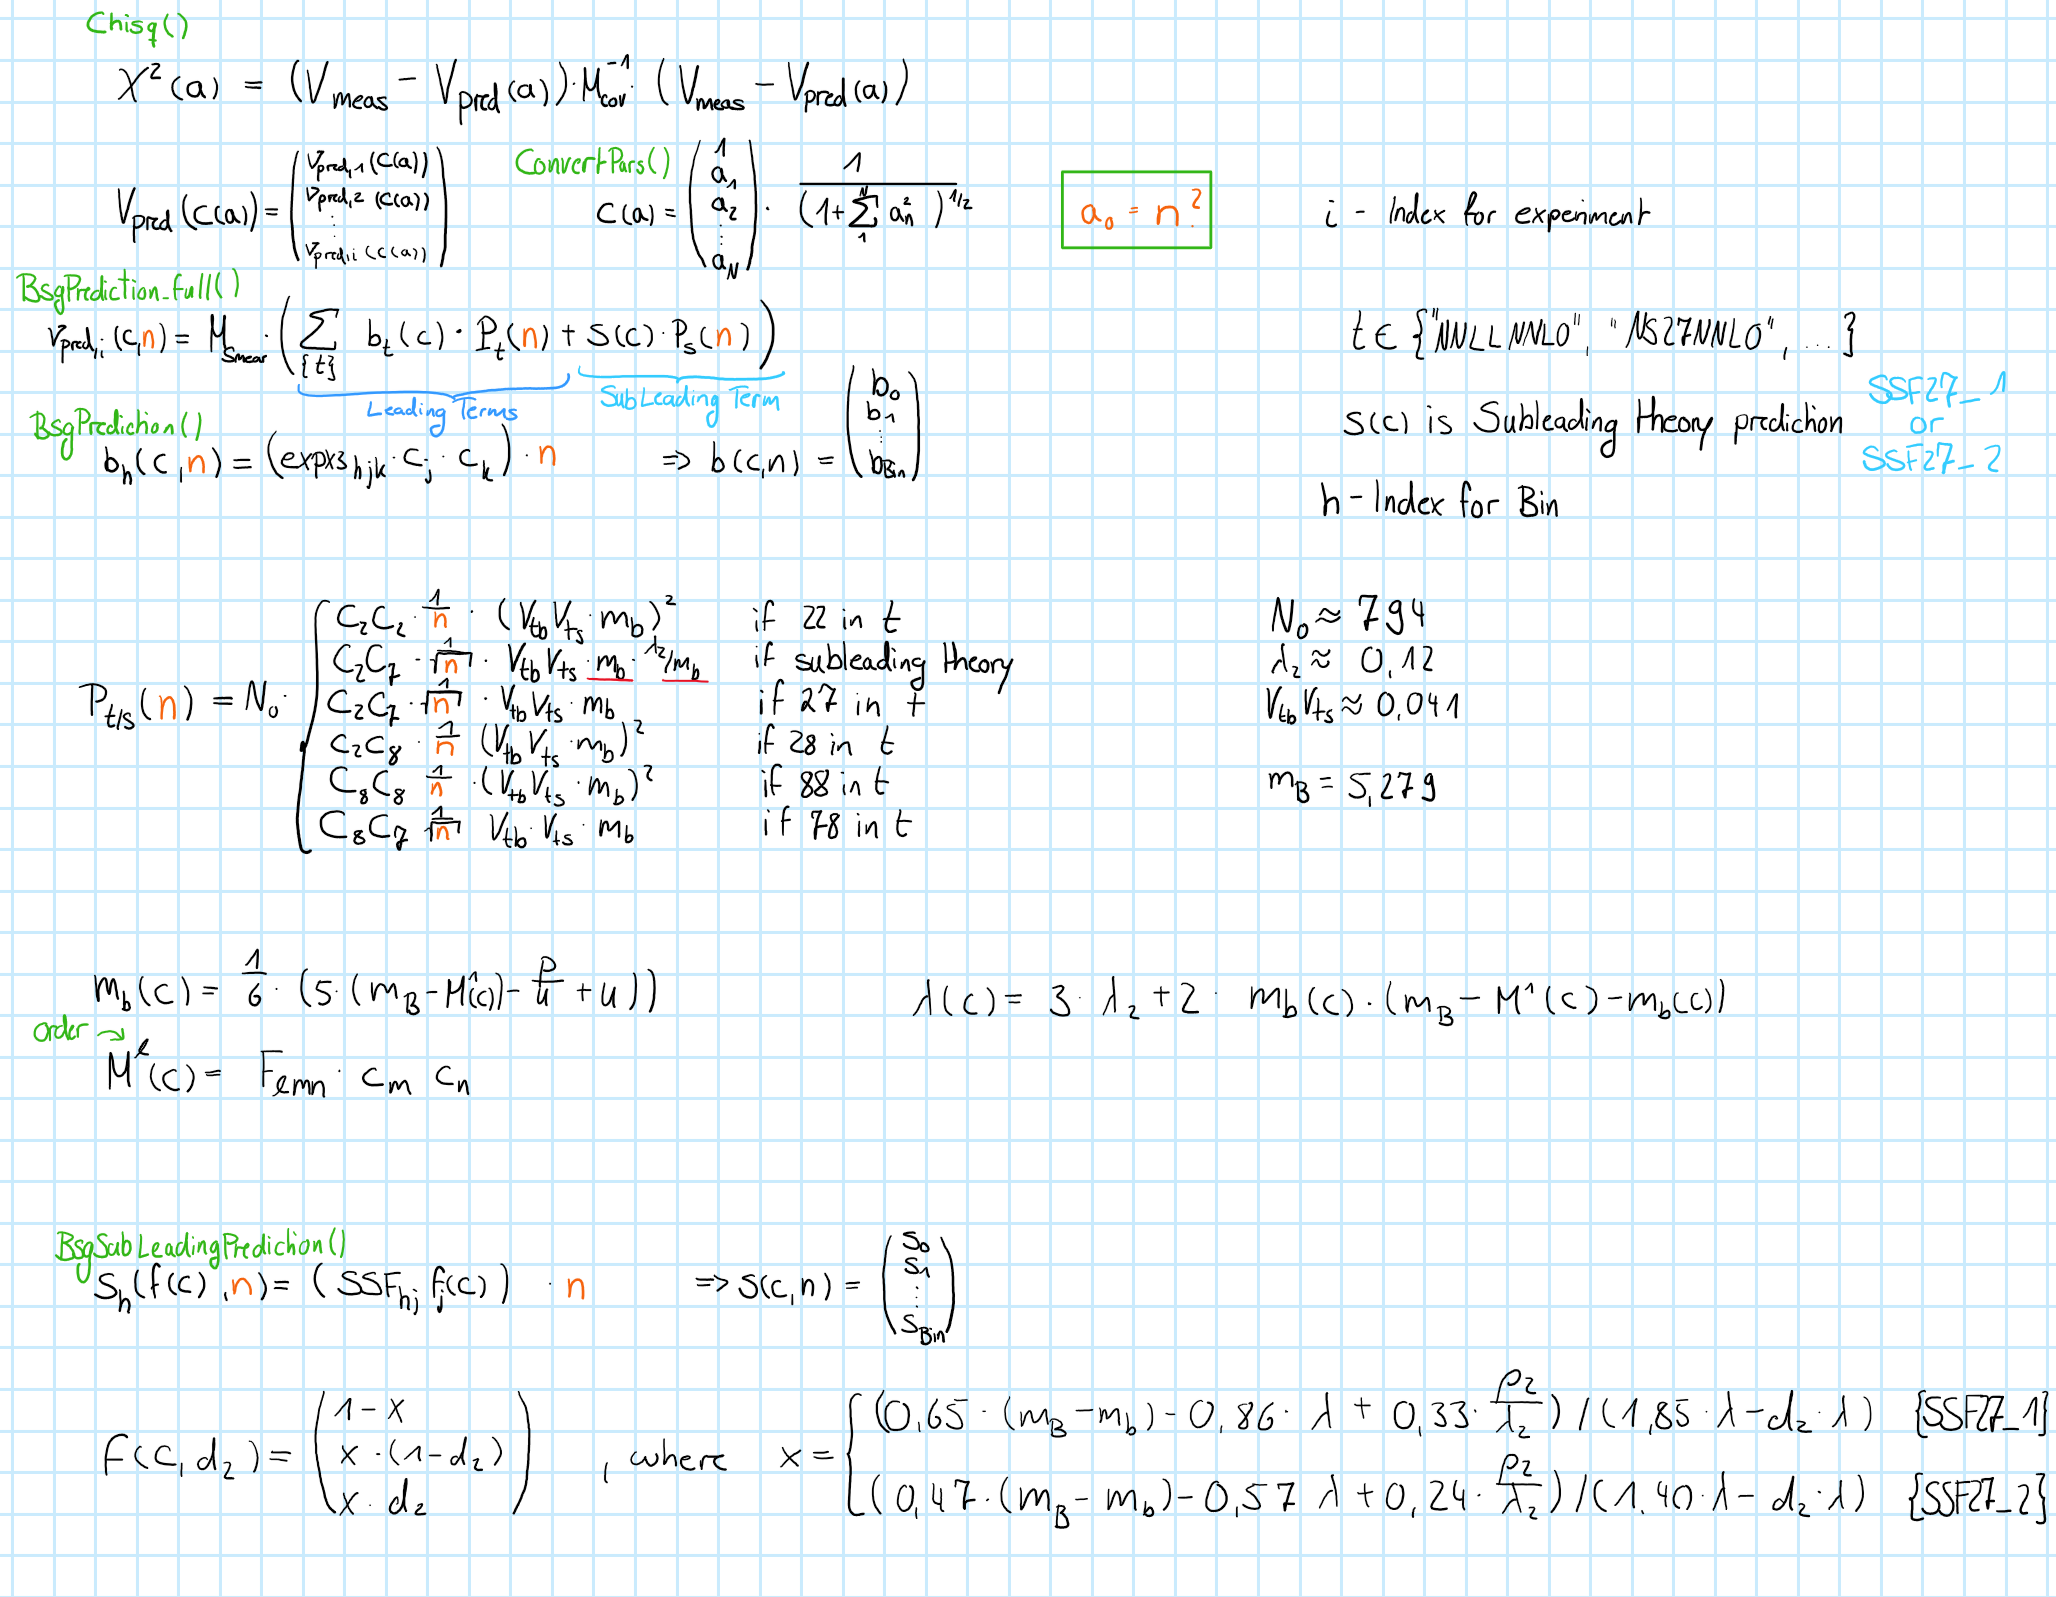 Chisq()
χ²(a) = (V_meas − V_pred(a))·M_cov⁻¹·(V_meas − V_pred(a))
V_pred(c(a)) = (v_pred,1(c(a)) v_pred,2(c(a)) ⋮ v_pred,i(c(a)))
ConvertPars()
c(a) = (1 a₁ a₂ ⋮ a_N) · 1/(1+∑₁ᴺ a_n²)^1/2
a₀ = n?
i - Index for experiment
BsgPrediction_full()
v_pred,i(c,n) = M_smear·(∑_{t} b_t(c)·P_t(n) + S(c)·P_s(n))
t ∈ {"NNLLNNLO", "NS27NNLO", ...}
Leading Terms
SubLeading Term
s(c) is Subleading theory prediction
SSF27_1
or
SSF27_2
BsgPrediction()
b_h(c,n) = (expx3_hjk·c_j·c_k)·n ⇒ b(c,n) = (b₀ b₁ ⋮ b_Bin)
h - Index for Bin
P_t/s(n) = N₀·
C₂C₂·1/n·(V_tb V_ts·m_b)² if 22 in t
C₂C₇·1/√n·V_tb V_ts·m_b·λ₂/m_b if subleading theory
C₂C₇·1/√n·V_tb V_ts·m_b if 27 in t
C₂C₈·1/n (V_tb V_ts·m_b)² if 28 in t
C₈C₈ 1/n·(V_tb V_ts·m_b)² if 88 in t
C₈C₇ 1/√n V_tb·V_ts·m_b if 78 in t
N₀ ≈ 794
λ₂ ≈ 0,12
V_tb V_ts ≈ 0,041
m_B = 5,279
m_b(c) = 1/6·(5·(m_B−M¹(c))−ρ/u + u))
λ(c) = 3·λ₂ + 2·m_b(c)·(m_B − M¹(c) − m_b(c))
order →
M^ℓ(c) = F_ℓmn·c_m c_n
BsgSubLeadingPrediction()
S_h(f(c),n) = (SSF_hj f_j(c))·n ⇒ s(c,n) = (s₀ s₁ ⋮ s_Bin)
f(c,d₂) = (1−x x·(1−d₂) x·d₂), where x =
(0,65·(m_B−m_b)−0,86·λ + 0,33·ρ₂/λ₂)/(1,85·λ−d₂·λ) {SSF27_1}
(0,47·(m_B−m_b)−0,57 λ + 0,24·ρ₂/λ₂)/(1.40·λ−d₂·λ) {SSF27_2}